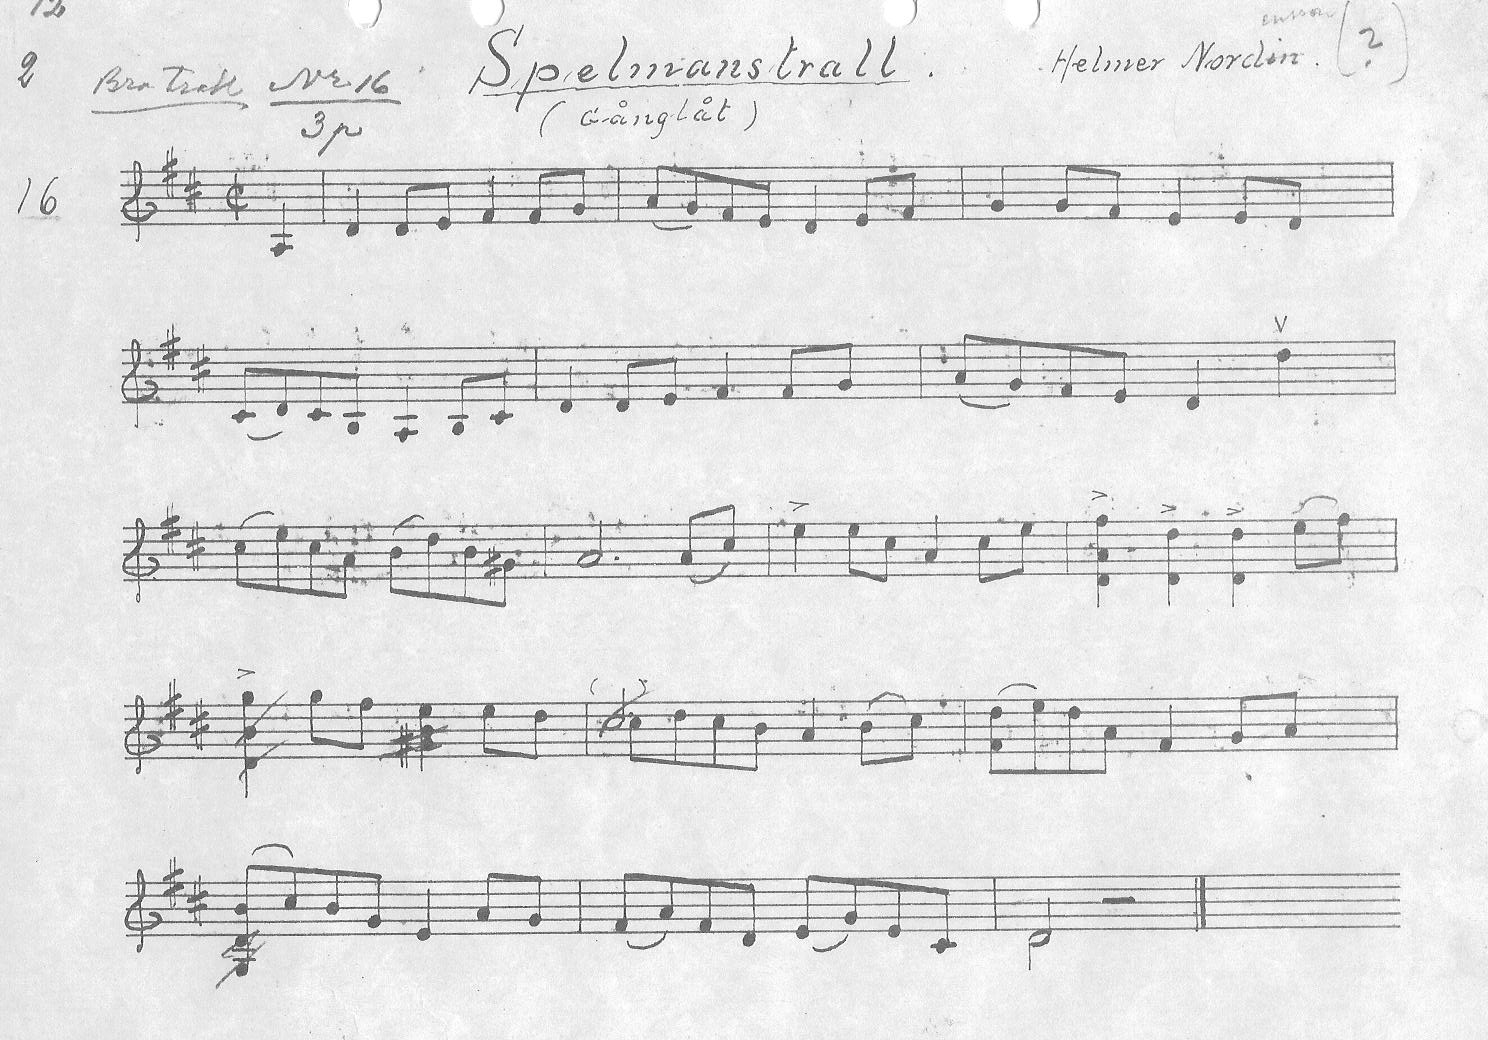 12
2 Bra Trall Nr 16 Spelmanstrall. Helmer Nordin. (?)
3p (Gånglåt)
16